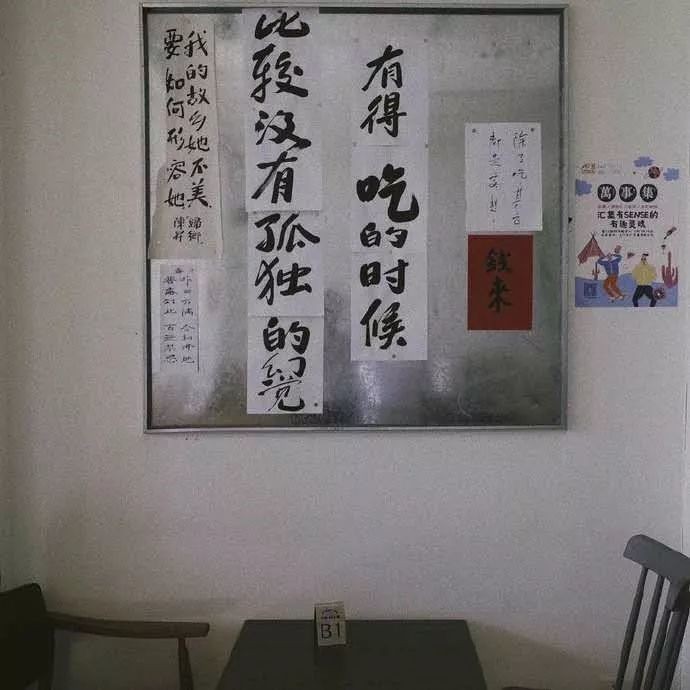 除了吃其它
都是妄想
钱来
有得吃的时候
比较没有孤独的觉
我的故乡她不美
要如何形容她
歸鄉
陳昇
萬事集
汇集有SENSE的
有趣灵魂
B1